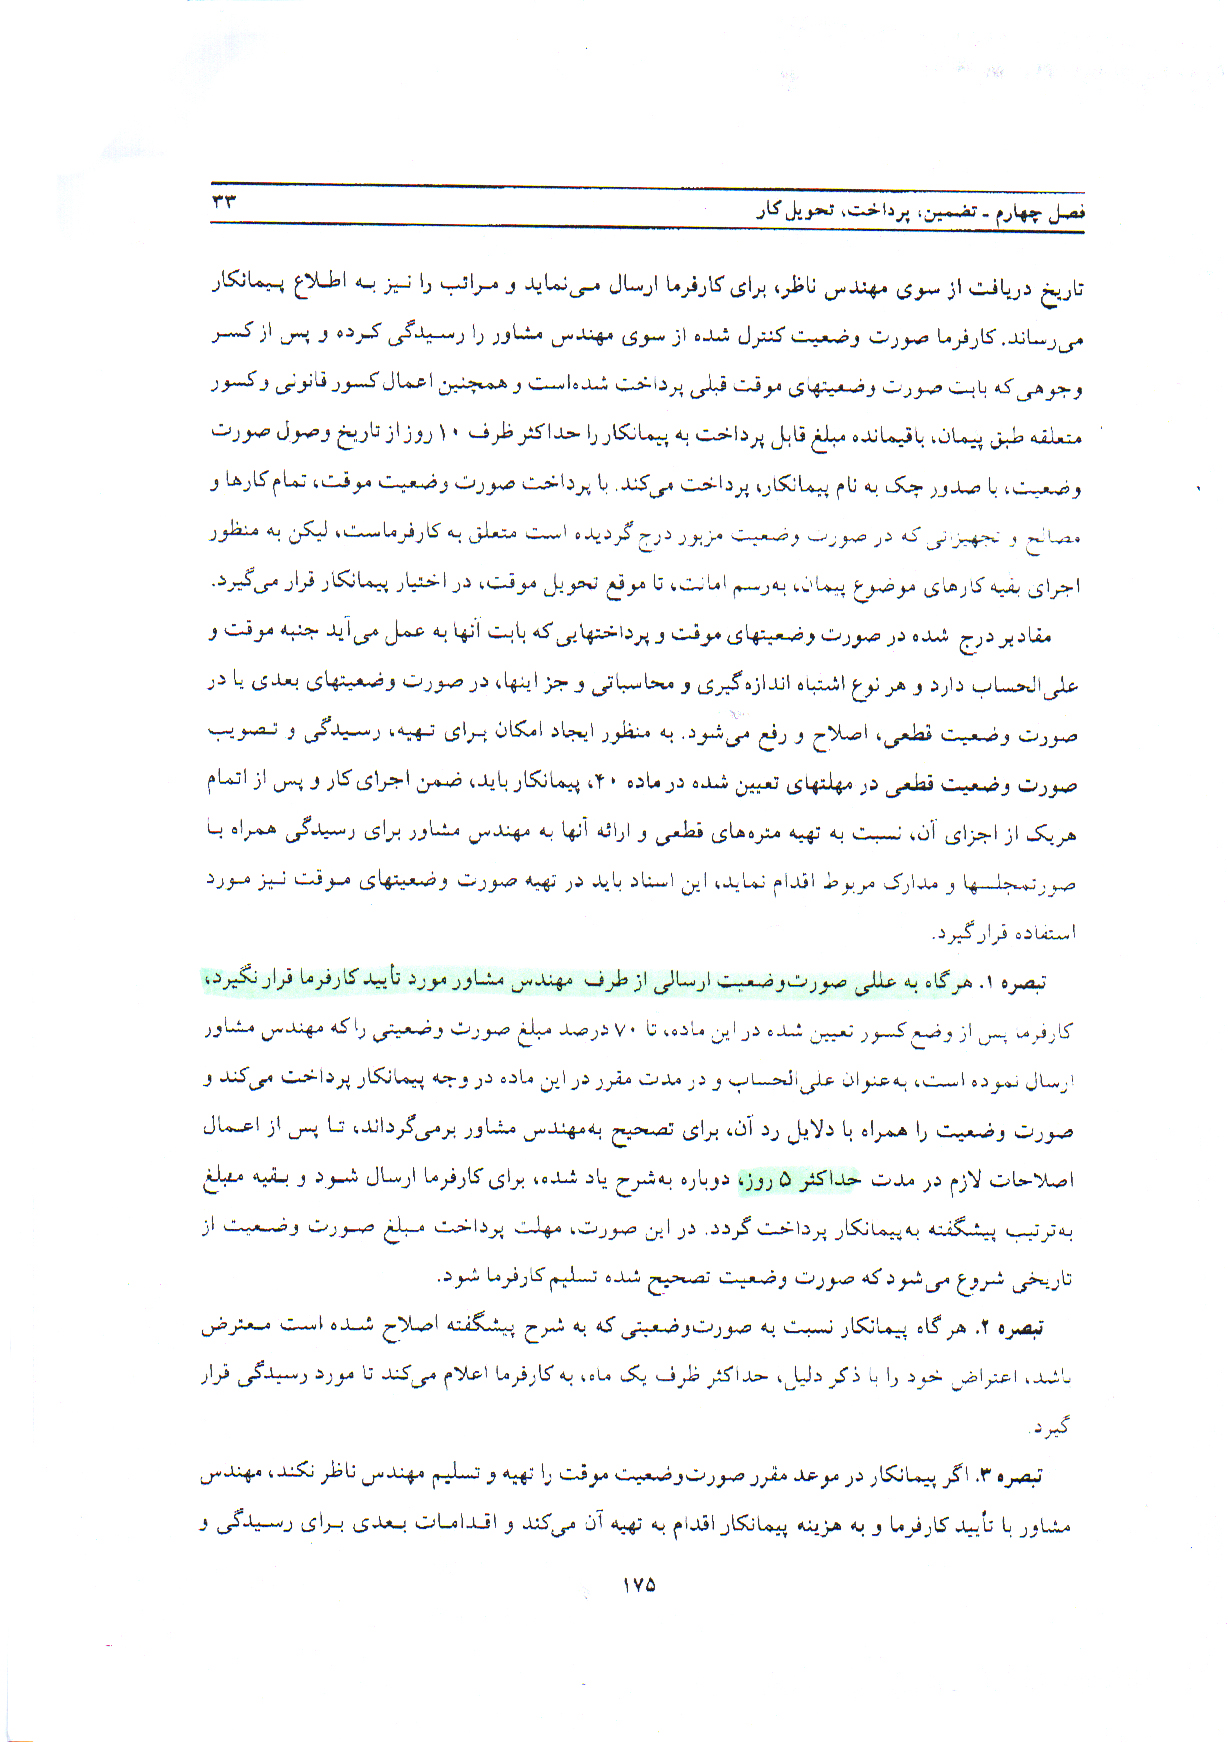 فصل چهارم ـ تضمین، پرداخت، تحویل کار ۳۳
تاریخ دریافت از سوی مهندس ناظر، برای کارفرما ارسال می‌نماید و مراتب را نیز به اطلاع پیمانکار
می‌رساند. کارفرما صورت وضعیت کنترل شده از سوی مهندس مشاور را رسیدگی کرده و پس از کسر
وجوهی که بابت صورت وضعیتهای موقت قبلی پرداخت شده‌است و همچنین اعمال کسور قانونی و کسور
متعلقه طبق پیمان، باقیمانده مبلغ قابل پرداخت به پیمانکار را حداکثر ظرف ۱۰ روز از تاریخ وصول صورت
وضعیت، با صدور چک به نام پیمانکار، پرداخت می‌کند. با پرداخت صورت وضعیت موقت، تمام کارها و
مصالح و تجهیزاتی که در صورت وضعیت مزبور درج گردیده است متعلق به کارفرماست، لیکن به منظور
اجرای بقیه کارهای موضوع پیمان، به‌رسم امانت، تا موقع تحویل موقت، در اختیار پیمانکار قرار می‌گیرد.
مقادیر درج شده در صورت وضعیتهای موقت و پرداختهایی که بابت آنها به عمل می‌آید جنبه موقت و
علی‌الحساب دارد و هر نوع اشتباه اندازه‌گیری و محاسباتی و جز اینها، در صورت وضعیتهای بعدی یا در
صورت وضعیت قطعی، اصلاح و رفع می‌شود. به منظور ایجاد امکان برای تهیه، رسیدگی و تصویب
صورت وضعیت قطعی در مهلتهای تعیین شده در ماده ۴۰، پیمانکار باید، ضمن اجرای کار و پس از اتمام
هریک از اجزای آن، نسبت به تهیه متره‌های قطعی و ارائه آنها به مهندس مشاور برای رسیدگی همراه با
صورتمجلسها و مدارک مربوط اقدام نماید، این اسناد باید در تهیه صورت وضعیتهای موقت نیز مورد
استفاده قرار گیرد.
تبصره ۱. هرگاه به عللی صورت‌وضعیت ارسالی از طرف مهندس مشاور مورد تأیید کارفرما قرار نگیرد،
کارفرما پس از وضع کسور تعیین شده در این ماده، تا ۷۰ درصد مبلغ صورت وضعیتی را که مهندس مشاور
ارسال نموده است، به‌عنوان علی‌الحساب و در مدت مقرر در این ماده در وجه پیمانکار پرداخت می‌کند و
صورت وضعیت را همراه با دلایل رد آن، برای تصحیح به‌مهندس مشاور برمی‌گرداند، تا پس از اعمال
اصلاحات لازم در مدت حداکثر ۵ روز، دوباره به‌شرح یاد شده، برای کارفرما ارسال شود و بقیه مبلغ
به‌ترتیب پیشگفته به‌پیمانکار پرداخت گردد. در این صورت، مهلت پرداخت مبلغ صورت وضعیت از
تاریخی شروع می‌شود که صورت وضعیت تصحیح شده تسلیم کارفرما شود.
تبصره ۲. هرگاه پیمانکار نسبت به صورت‌وضعیتی که به شرح پیشگفته اصلاح شده است معترض
باشد، اعتراض خود را با ذکر دلیل، حداکثر ظرف یک ماه، به کارفرما اعلام می‌کند تا مورد رسیدگی قرار
گیرد.
تبصره ۳. اگر پیمانکار در موعد مقرر صورت‌وضعیت موقت را تهیه و تسلیم مهندس ناظر نکند، مهندس
مشاور با تأیید کارفرما و به هزینه پیمانکار اقدام به تهیه آن می‌کند و اقدامات بعدی برای رسیدگی و
۱۷۵